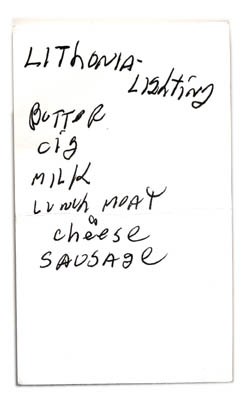 LIThONIA-
LighTiNg
BUTTER
cig
MILK
LUNCh MEAT
&
cheese
SAUSAge